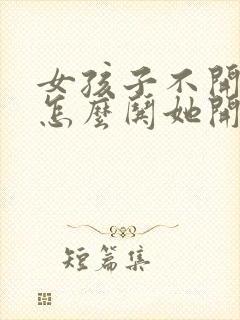 女孩子不開
怎麼鬨她開
短篇集